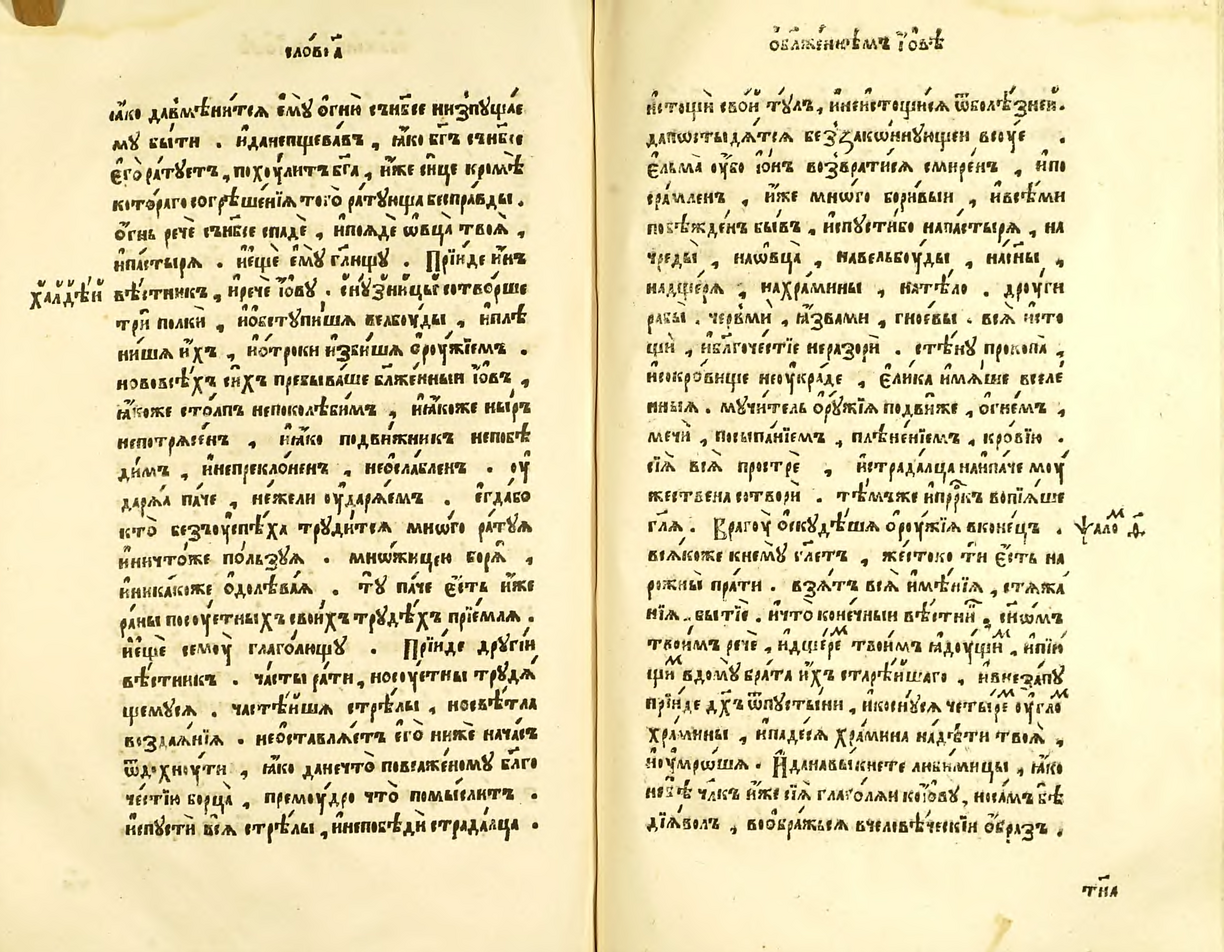 сло́во, а҃
ꙗ҆́ко даꙵвмѣни́тсѧ є҆мꙋ̀ ѻ҆гню̀ сънб҃се низꙋпꙋщае
мꙋ бы́ти . и҆данепщева́въ , ꙗ҆́ко бг҃ъ сънб҃се
є҆го̀ ра́тꙋетъ , похоу́литъ бг҃а , и҆́же си́це кромѣ̀
кото́раго согрѣше́нїѧ того̀ ра́тꙋюща бесправды .
ѻ҆́гнь речѐ сънб҃се спадѐ , и҆поѧдѐ ѡ҆вца̀ твоѧ̀ ,
и҆па́стырѧ . и҆є҆щѐ є҆мꙋ̀ гл҃ющꙋ . Прїи́де и҆́нъ
вѣ́стникъ , и҆речѐ і҆́овꙋ . си́ꙋзницы сотво́рше
трѝ полкѝ , и҆ѡ҆бстꙋпи́шѧ велбоу́ды , и҆плѣ
ни́шѧ и҆́хъ , и҆ѻ҆́троки и҆зби́шѧ ѻ҆роу́жїемъ .
нововсѣ́хъ си́хъ пребыва́ше бл҃же́нныи і҆́овъ ,
ꙗ҆́коже сто́лпъ непоколѣби́мъ , и҆ꙗ҆́коже ны́ръ
непотрѧсе́нъ , и҆ꙗ҆́ко подви́жникъ непобѣ
ди́мъ , и҆непрекло́ненъ , неѡ҆сла́бленъ . оу҆
дарѧ́ѧ па́че , не́жели оу҆дарѧ́емъ . є҆гда́бо
кто̀ безъоуспѣ́ха трꙋди́тсѧ мно́го ра́тꙋѧ
и҆ничто́же по́льзꙋѧ . мно́жицею борѧ̀ ,
и҆ника́коже ѻ҆долѣва́ѧ . тꙋ̀ па́че є҆́сть и҆́же
ра́ны посоу́етныхъ свои́хъ трꙋдѣ́хъ прїе́млѧ .
и҆є҆щѐ семоу̀ глаго́лющꙋ . Прїи́де дрꙋгі́и
вѣ́стникъ . ча́сты ра́ти , носоу́етны трꙋдѧ́
щемꙋсѧ . частѣ́йшѧ стрѣ́лы , носвѣ́тла
воздаѧ́нїѧ . неѡ҆ставлѧ́етъ є҆го̀ ни́же нача́съ
ѿдохноу́ти , ꙗ҆́ко дане́что̀ поваже́номꙋ бл҃го
че́стїю борца̀ , премоу́дро что̀ помы́слитъ .
и҆спꙋстѝ всѧ̀ стрѣ́лы , и҆непобѣдѝ страда́лца .
халдѣ́и
ѡ҆бл҃же́ннѣмъ і҆́овѣ
и҆стощѝ сво́й тꙋ́лъ , и҆неи҆стощи́сѧ ѿболѣ́зней .
дапостыдѧ́тсѧ беззако́ннꙋющеи всоуе .
є҆льма̀ оу҆́бо ѻ҆́нъ возврати́сѧ смире́нъ , и҆по
сра́мленъ , и҆́же мно́го бори́выи , и҆всѣ́ми
побѣжде́нъ бы́въ , и҆спꙋсти́бо напа́стырѧ , на
чреды̀ , наѻ҆вца̀ , навельбоу́ды , насы́ны ,
надще́рѧ , нахра́мины , натѣ́ло . дроу́ги
рабы̀ . червмѝ , ꙗ҆́звами , гно́евы . всѧ̀ и҆сто
щѝ , и҆бл҃гоче́стїе неразорѝ . стѣ́нꙋ прокопа̀ ,
и҆сокро́вище неоукра́де , є҆ли́ка и҆мѧ́ше вселе
нныѧ . мꙋчи́тель ѻ҆рꙋ́жїѧ подви́же , ѻ҆гне́мъ ,
мечѝ , посыпа́нїемъ , плѣне́нїемъ , кро́вїю .
сїѧ̀ всѧ̀ прострѐ , и҆страда́лца наи҆па́че моу́
жествена сотворѝ . тѣ́мъже и҆прⷪ҇ркъ вопїѧ́ше
гл҃ѧ . Врагоу̀ ѡ҆скꙋдѣ́шѧ ѻ҆роу́жїѧ вконе́цъ .
всѧ́коже кнемꙋ̀ гл҃етъ , же́стоко тѝ є҆́сть на
рожны̀ пра́ти . взѧ́тъ всѧ̀ и҆мѣ́нїѧ , стѧжа́
нїѧ . бытїѐ . и҆что̀ коне́чныи вѣ́стни , сыно́мъ
твои́мъ речѐ , и҆дще́ремъ твои́мъ ꙗ҆доу́щимъ , и҆пїю́
щимъ вдомꙋ̀ бра́та и҆́хъ старѣ́йшаго , и҆внеза́пꙋ
прїи́де дх҃ъ ѿпꙋсты́ни , и҆коснꙋ́сѧ четы́ремъ оу҆гло́мъ
хра́мины , и҆паде́сѧ хра́мина надѣ́ти твоѧ̀ ,
и҆оу҆мро́шѧ . И҆данавы́кнете люби́мицы , ꙗ҆́ко
небѣ̀ чл҃къ и҆́же сїѧ̀ глаго́лѧи ко і҆́овꙋ ,носа́мъ бѣ̀
дїѧ́волъ , воѡ҆бра́жьсѧ вчеловѣ́ческїи ѻ҆́браз .
ѱало́м , ѳ҃
тїѧ